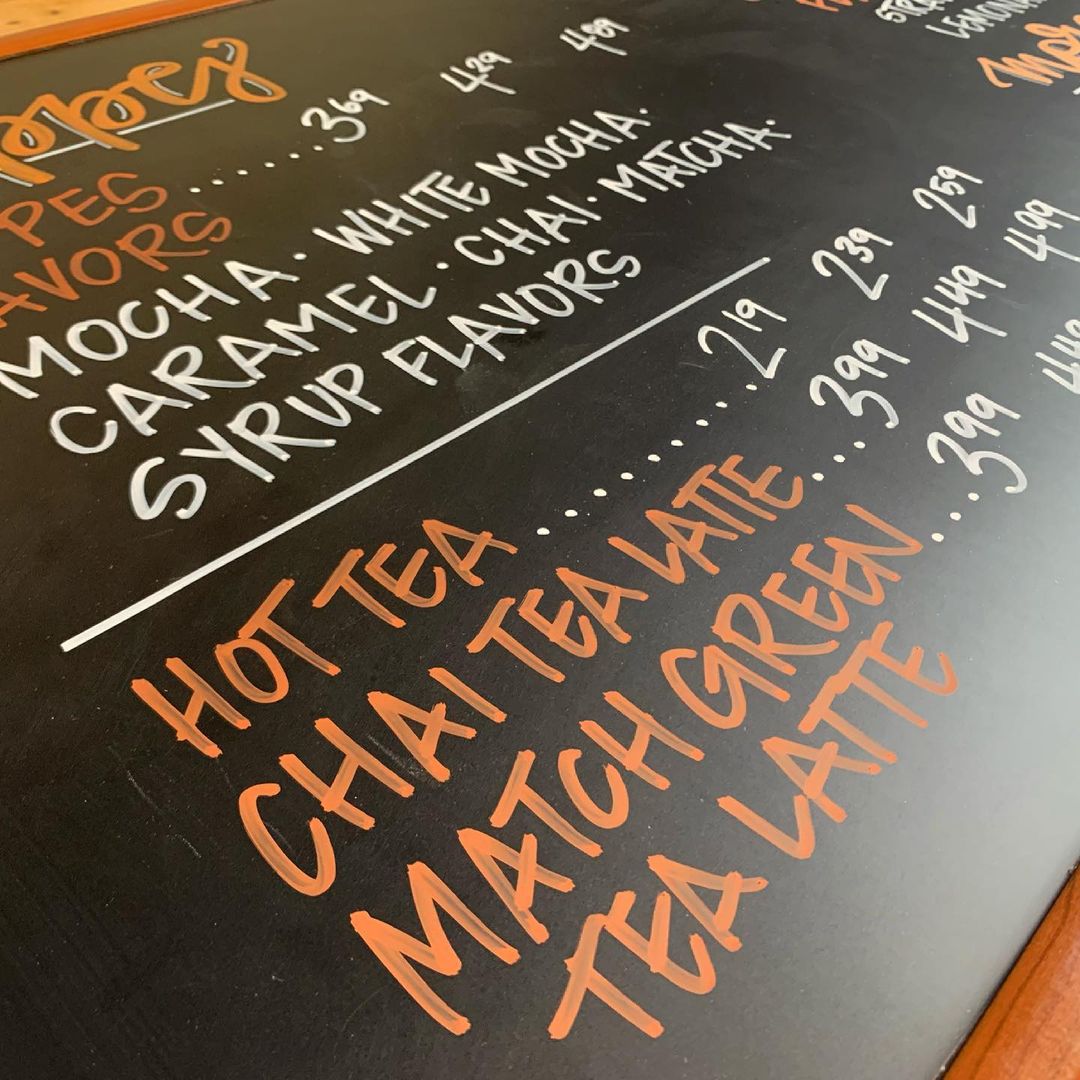 PES ...... 3 69 4 29 4 89
AVORS
MOCHA · WHITE MOCHA ·
CARAMEL · CHAI · MATCHA ·
SYRUP FLAVORS
HOT TEA ......... 2 19 2 39 2 59
CHAI TEA LATTE ... 3 99 4 49 4 99
MATCH GREEN ... 3 99
TEA LATTE
LEMONA